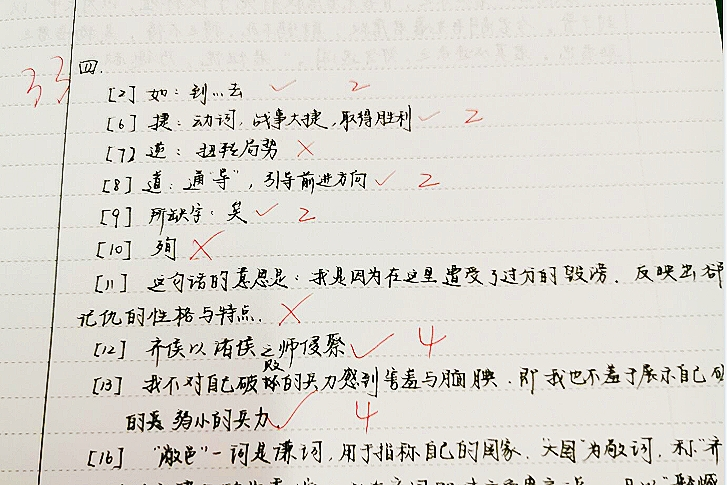 33 四.
[2] 如：到……去 ✓ 2
[6] 捷：动词，战事大捷，取得胜利 ✓ 2
[7] 逆：扭转局势 ×
[8] 道：通"导"，引导前进方向 ✓ 2
[9] 所缺字：矣 ✓ 2
[10] 殉 ×
[11] 这句话的意思是：我是因为在这里遭受了过分的毁谤．反映出郤
记仇的性格与特点． ×
[12] 齐侯以诸侯之师侵蔡 ✓ 4
[13] 我不对自己破败的兵力感到害羞与腼腆．即我也不羞于展示自己
的 弱小的兵力 ✓ 4
[16] "敝邑"一词是谦词，用于指称自己的国家．"大国"为敬词，利"齐